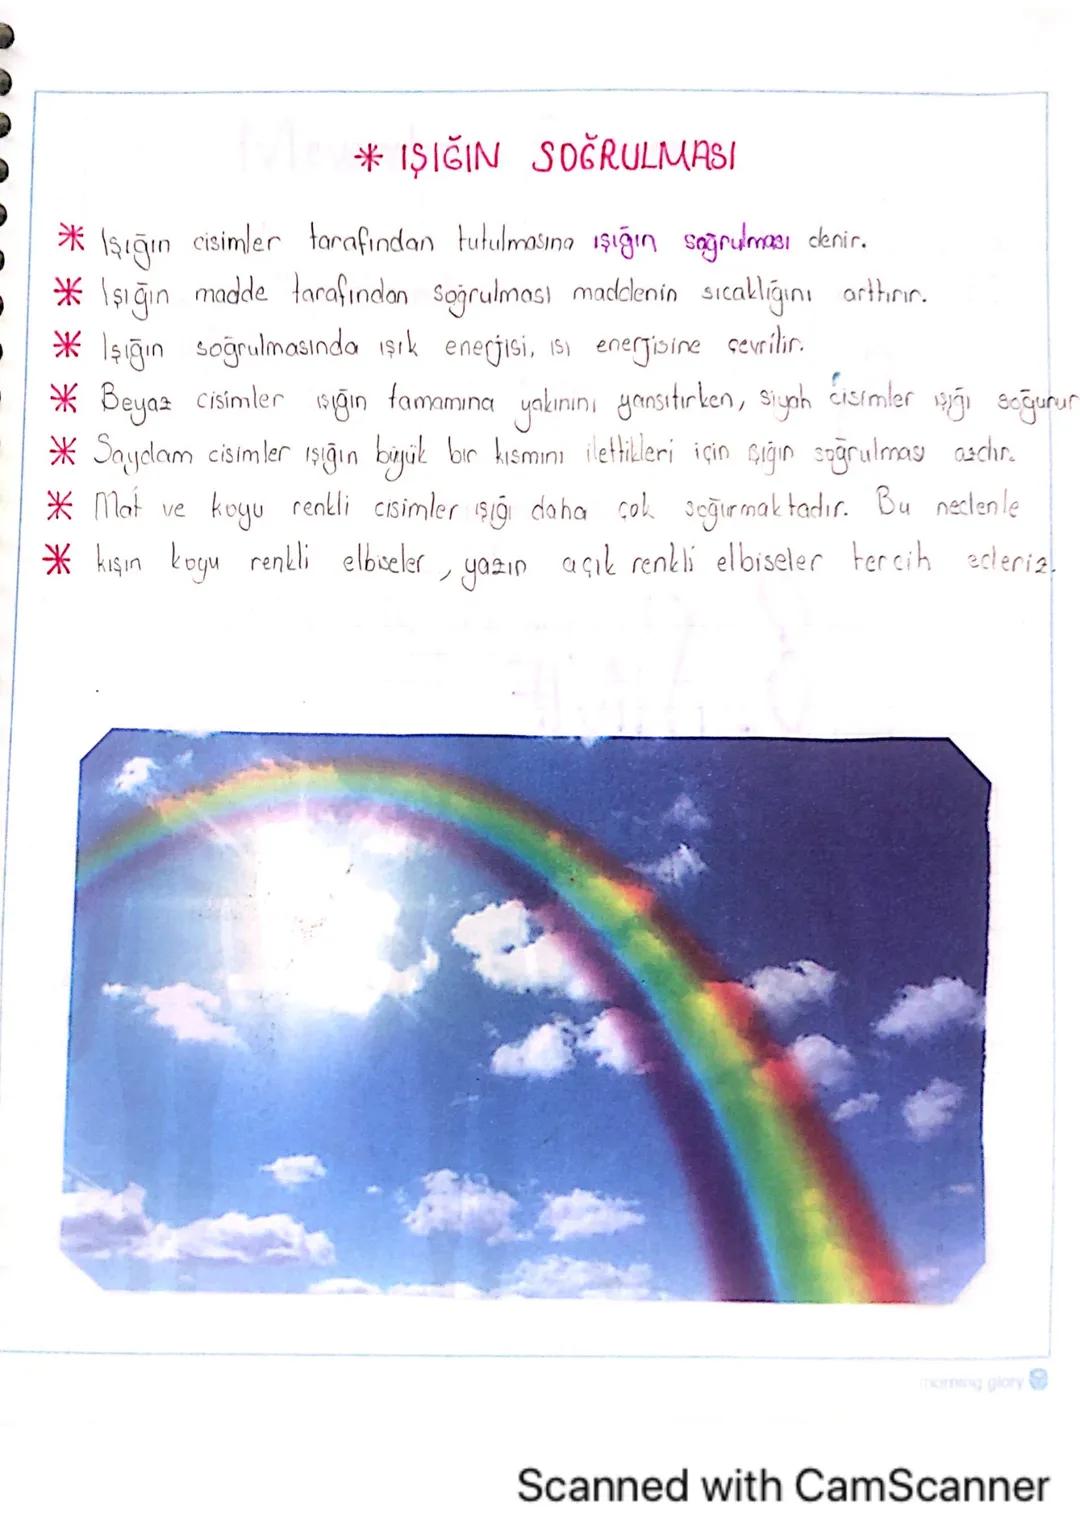 * IŞIĞIN SOĞRULMASI
* Işığın cisimler tarafından tutulmasına ışığın soğrulması denir.
* Işığın madde tarafından soğrulması maddenin sıcaklığını arttırır.
* Işığın soğrulmasında ışık enerjisi, ısı enerjisine çevrilir.
* Beyaz cisimler ışığın tamamına yakınını yansıtırken, siyah cisimler ışığı soğurur
* Saydam cisimler ışığın büyük bir kısmını ilettikleri için ışığın soğrulması azdır.
* Mat ve koyu renkli cisimler ışığı daha çok soğurmaktadır. Bu nedenle
* kışın koyu renkli elbiseler, yazın açık renkli elbiseler tercih ederiz.
morning glory
Scanned with CamScanner